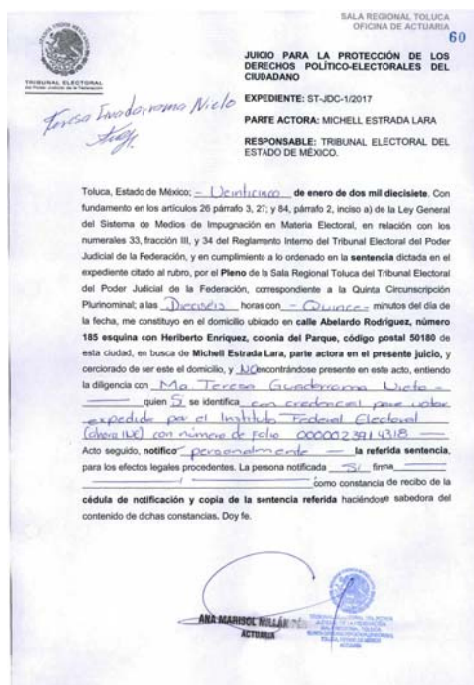 SALA REGIONAL TOLUCA
OFICINA DE ACTUARIA
60
TRIBUNAL ELECTORAL
del Poder Judicial de la Federación
JUICIO PARA LA PROTECCIÓN DE LOS
DERECHOS POLÍTICO-ELECTORALES DEL
CIUDADANO
EXPEDIENTE: ST-JDC-1/2017
PARTE ACTORA: MICHELL ESTRADA LARA
RESPONSABLE: TRIBUNAL ELECTORAL DEL
ESTADO DE MÉXICO.
Teresa Nieto
Toluca, Estado de México; – Veinticinco de enero de dos mil diecisiete. Con
fundamento en los artículos 26 párrafo 3, 27; y 84, párrafo 2, inciso a) de la Ley General
del Sistema de Medios de Impugnación en Materia Electoral, en relación con los
numerales 33, fracción III, y 34 del Reglamento Interno del Tribunal Electoral del Poder
Judicial de la Federación, y en cumplimiento a lo ordenado en la sentencia dictada en el
expediente citado al rubro, por el Pleno de la Sala Regional Toluca del Tribunal Electoral
del Poder Judicial de la Federación, correspondiente a la Quinta Circunscripción
Plurinominal; a las Dieciséis horas con – Quince – minutos del día de
la fecha, me constituyo en el domicilio ubicado en calle Abelardo Rodríguez, número
185 esquina con Heriberto Enríquez, coonia del Parque, código postal 50180 de
esta ciudad, en busca de Michell Estrada Lara, parte actora en el presente juicio, y
cerciorado de ser este el domicilio, y NO encontrándose presente en este acto, entiendo
la diligencia con Ma. Teresa Guadarrama Nieto –
quien Sí se identifica con credencial para votar
expedida por el Instituto Federal Electoral
(ahora INE) con número de folio 0000023914318
Acto seguido, notifico personalmente la referida sentencia,
para los efectos legales procedentes. La pesona notificada Sí firma
como constancia de recibo de la
cédula de notificación y copia de la sentencia referida haciéndose sabedora del
contenido de dchas constancias. Doy fe.
ANA MARISOL MILLÁN
ACTUARIA